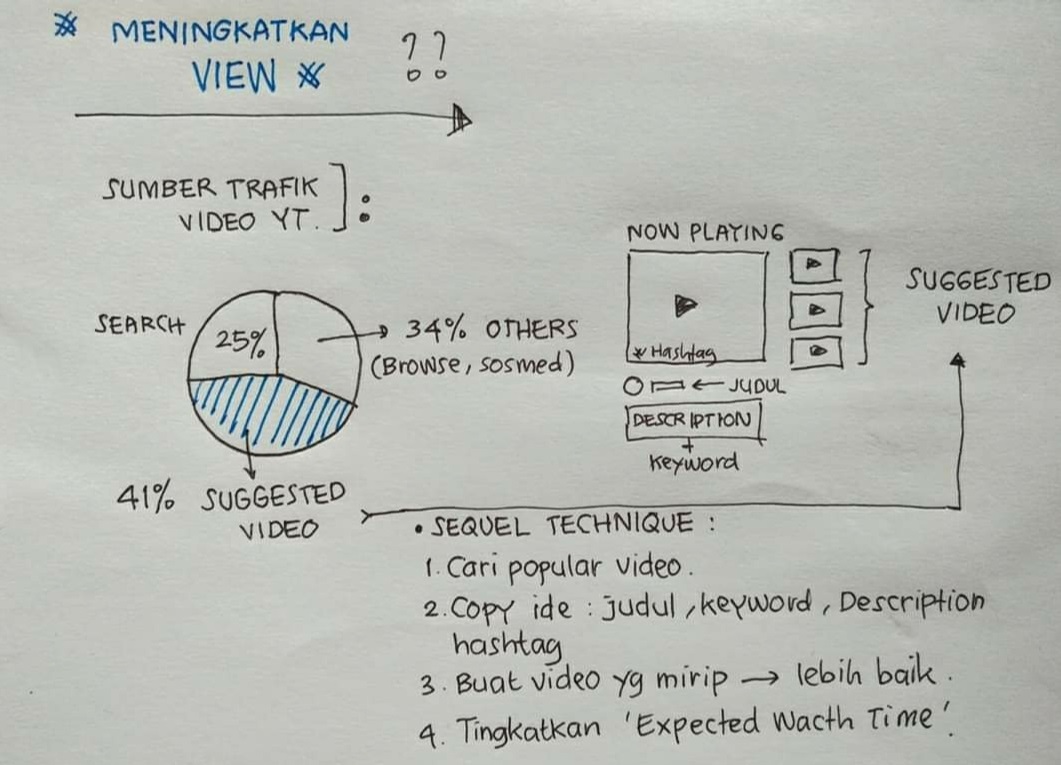 MENINGKATKAN
VIEW ??
SUMBER TRAFIK
VIDEO YT. :
SEARCH
25%
34% OTHERS
(Browse, sosmed)
41% SUGGESTED
VIDEO
NOW PLAYING
* Hashtag
← JUDUL
DESCRIPTION
+
Keyword
SUGGESTED
VIDEO
• SEQUEL TECHNIQUE :
1. Cari popular video.
2. Copy ide : judul, keyword, Description
hashtag
3. Buat video yg mirip → lebih baik.
4. Tingkatkan 'Expected Wacth Time'.